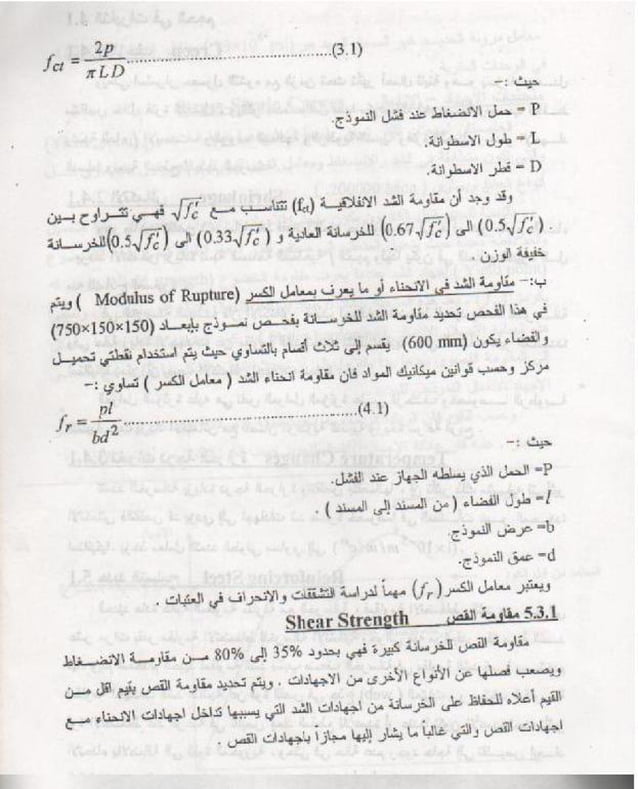 f_ct = 2p / πLD ..........(3.1)
حيث :-
P= حمل الانضغاط عند فشل النموذج.
L= طول الاسطوانة.
D= قطر الاسطوانة.
وقد وجد أن مقاومة الشد الانفلاقية (f_ct) تتناسب مع √f'_c فهي تتراوح بين
(0.5√f'_c) الى (0.67√f'_c) للخرسانة العادية و (0.33√f'_c) الى (0.5√f'_c) للخرسانة
خفيفة الوزن .
ب:- مقاومة الشد في الانحناء أو ما يعرف بمعامل الكسر (Modulus of Rupture ) ويتم
في هذا الفحص تحديد مقاومة الشد للخرسانة بفحص نموذج بإبعاد (150×150×750)
والفضاء يكون (600 mm) يقسم إلى ثلاث أقسام بالتساوي حيث يتم استخدام نقطتي تحميل
مركز وحسب قوانين ميكانيك المواد فان مقاومة انحناء الشد ( معامل الكسر ) تساوي :-
f_r = pl / bd² ..........(4.1)
حيث :-
P= الحمل الذي يسلطه الجهاز عند الفشل.
l= طول الفضاء ( من المسند إلى المسند ) .
b= عرض النموذج.
d= عمق النموذج.
ويعتبر معامل الكسر (f_r) مهماً لدراسة التشققات والانحراف في العتبات .
5.3.1 مقاومة القص Shear Strength
مقاومة القص للخرسانة كبيرة فهي بحدود 35% إلى 80% من مقاومة الانضغاط
ويصعب فصلها عن الأنواع الأخرى من الاجهادات . ويتم تحديد مقاومة القص بقيم اقل من
القيم أعلاه للحفاظ على الخرسانة من اجهادات الشد التي يسببها تداخل اجهادات الانحناء مع
اجهادات القص والتي غالباً ما يشار إليها مجازا باجهادات القص .